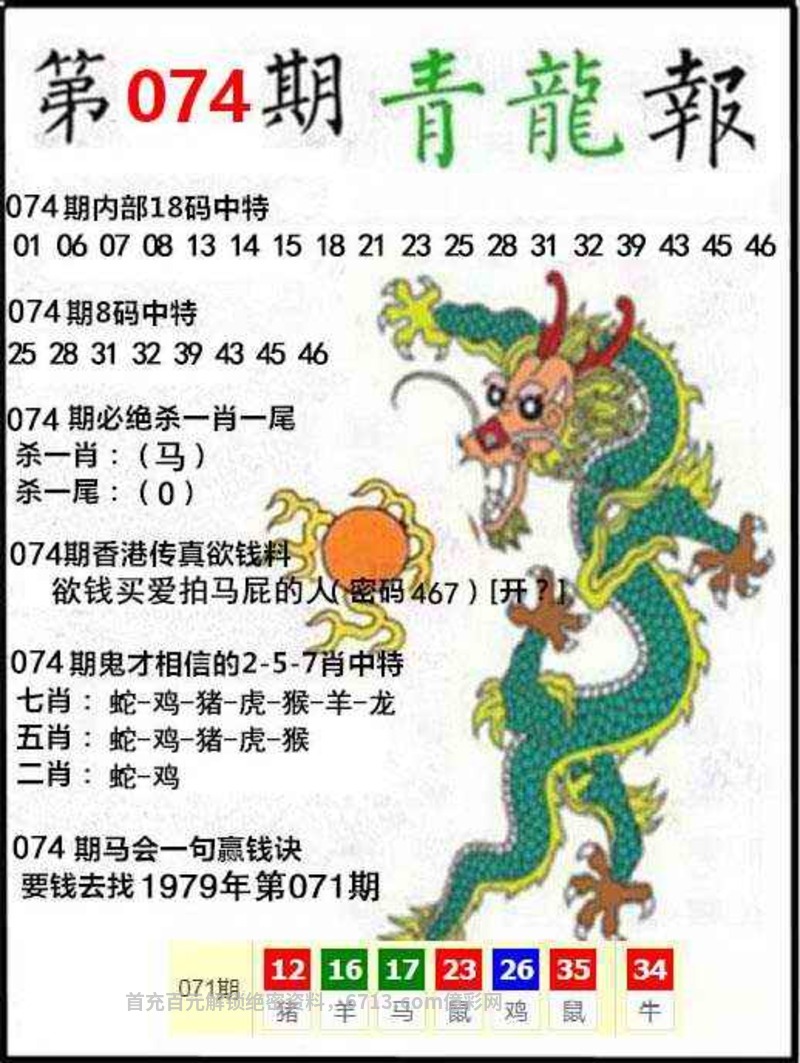 第074期青龍報
074期内部18码中特
01 06 07 08 13 14 15 18 21 23 25 28 31 32 39 43 45 46
074期8码中特
25 28 31 32 39 43 45 46
074 期必绝杀一肖一尾
杀一肖：（马）
杀一尾：（0）
074期香港传真欲钱料
欲钱买爱拍马屁的人( 密码467 ) [开？]
074期鬼才相信的2-5-7肖中特
七肖：蛇-鸡-猪-虎-猴-羊-龙
五肖：蛇-鸡-猪-虎-猴
二肖：蛇-鸡
074 期马会一句赢钱诀
要钱去找1979年第071期
071期 12 16 17 23 26 35 34
首充百元解锁绝密资料，6713.com倍彩网
猪 羊 马 鼠 鸡 鼠 牛